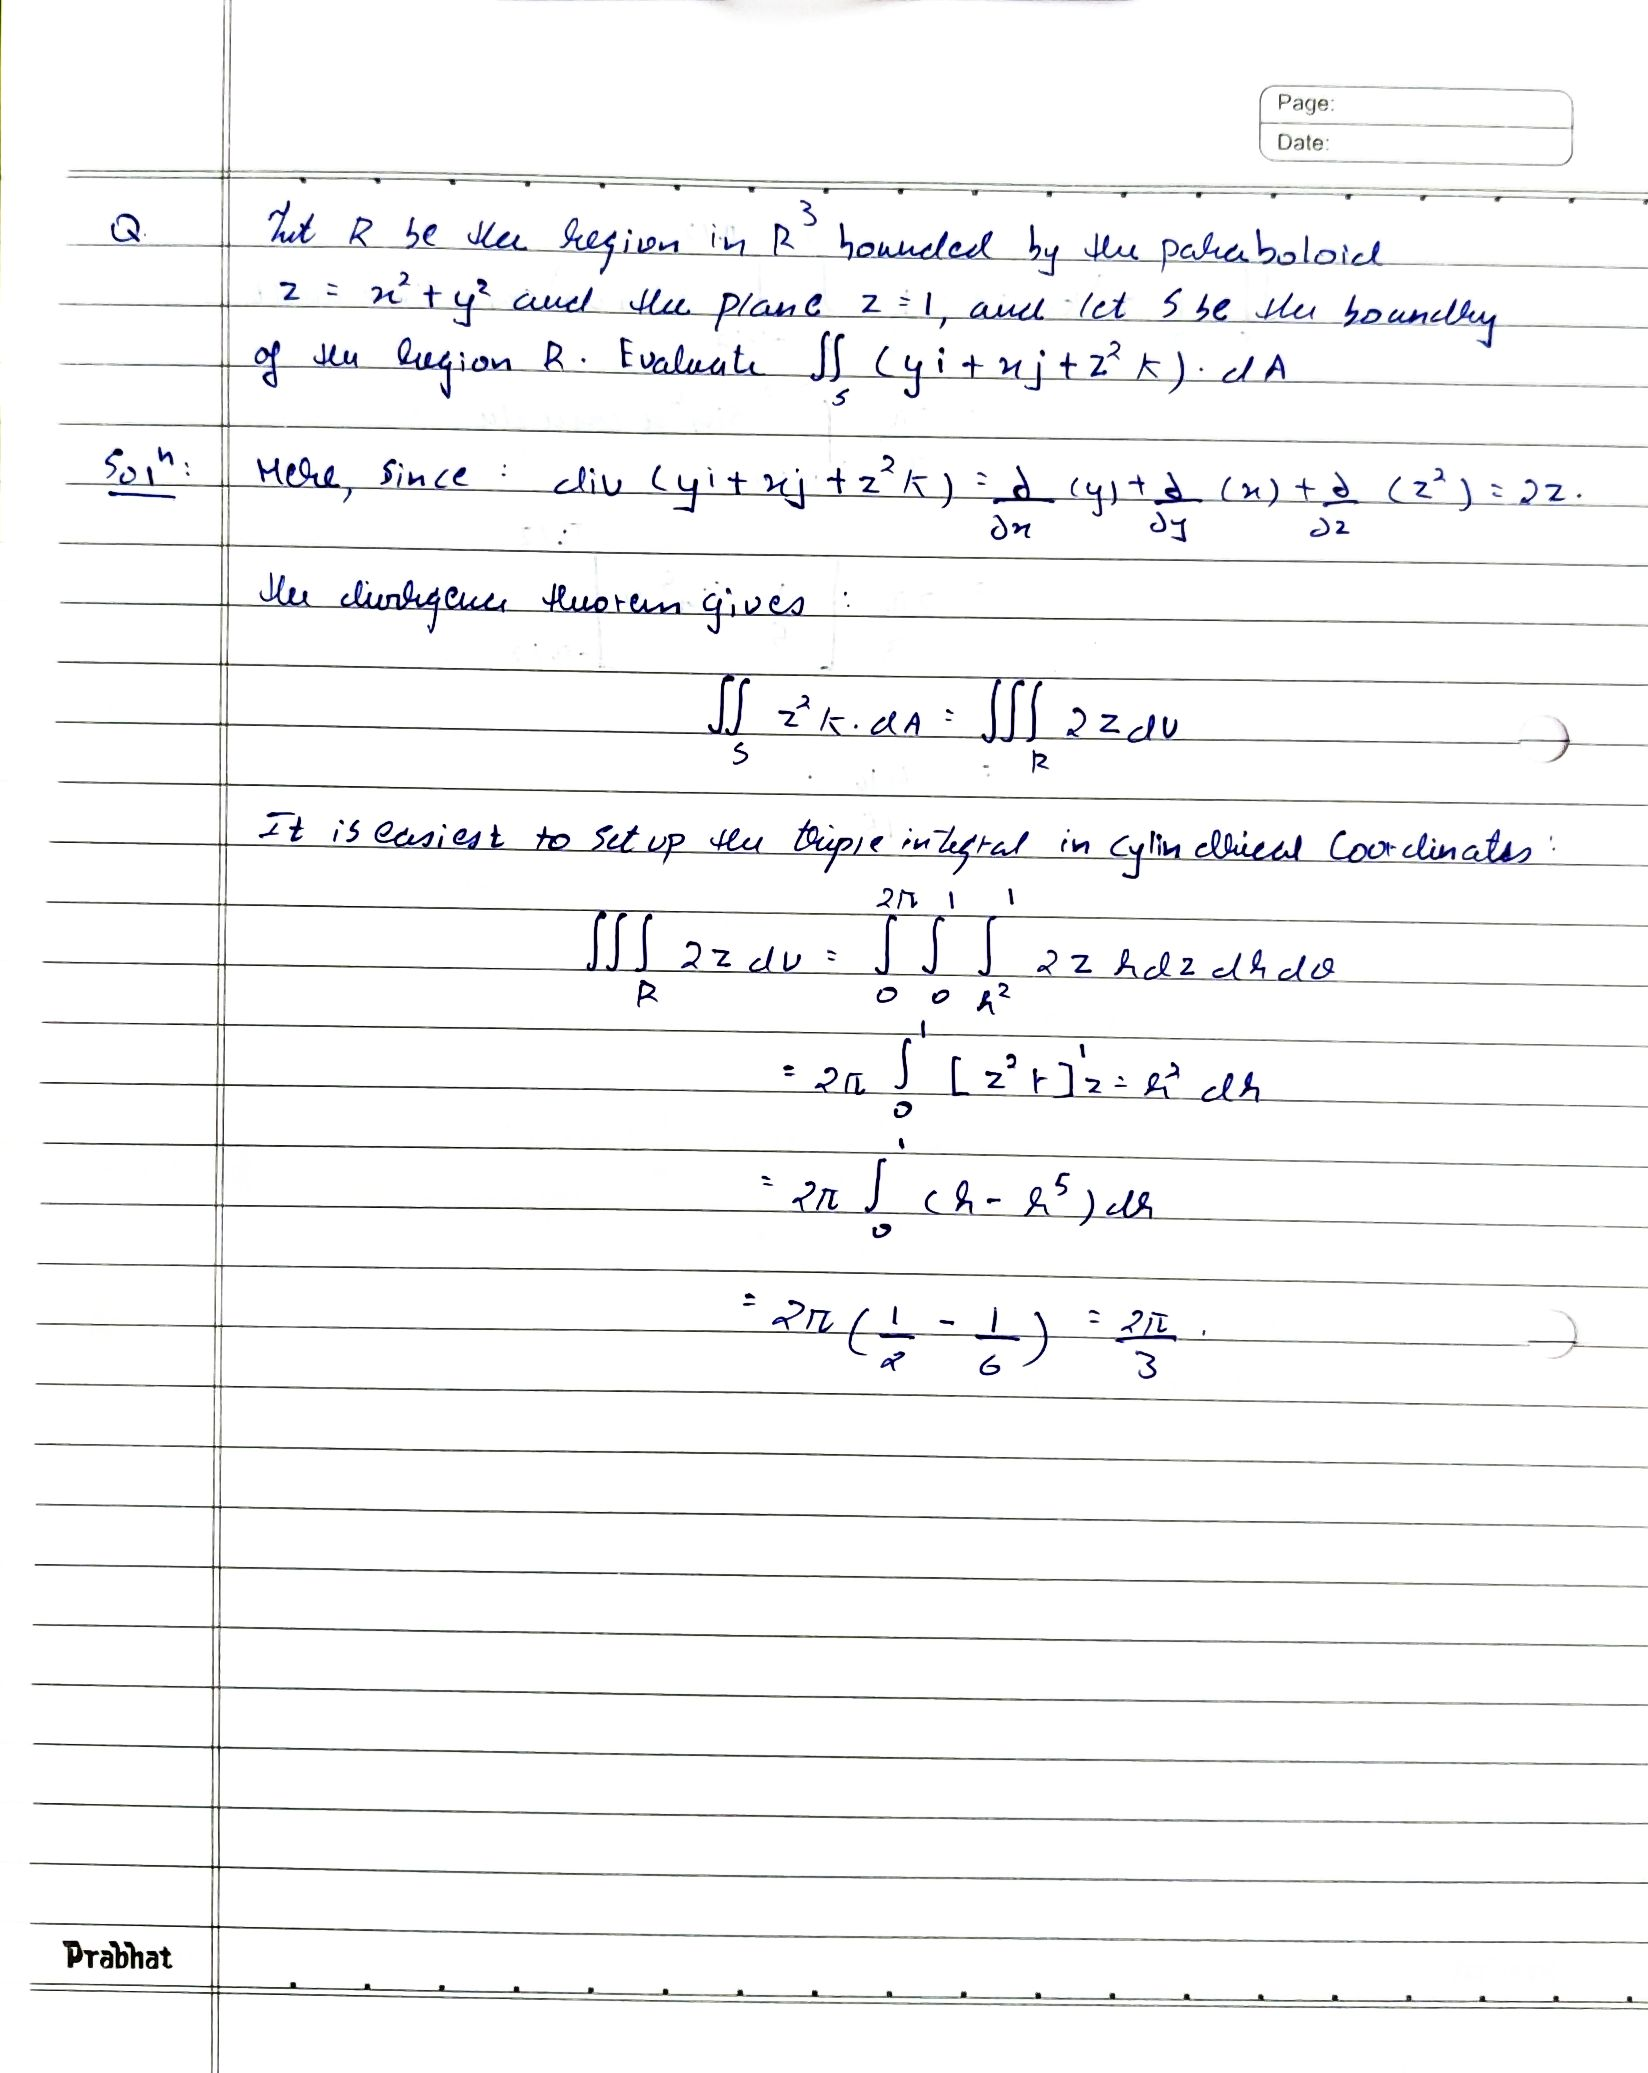 Page:
Date:
Q. Let R be the region in R³ bounded by the paraboloid
z = x² + y² and the plane z = 1, and let S be the boundry
of the region R. Evaluate ∬_S (yi + xj + z² k). dA
Solⁿ: Here, Since : div (yi + xj + z² k) = ∂/∂x (y) + ∂/∂y (x) + ∂/∂z (z²) = 2z.
the divergence theorem gives :
∬_S z² k. dA = ∭_R 2z dv
It is easiest to set up the triple integral in cylindrical Coordinates :
∭_R 2z dv = ∫_0^2π ∫_0^1 ∫_r²^1 2z rdz dr dθ
= 2π ∫_0^1 [z² r]^1_z = r² dr
= 2π ∫_0^1 (r - r⁵) dr
= 2π (1/2 - 1/6) = 2π/3 .
Prabhat